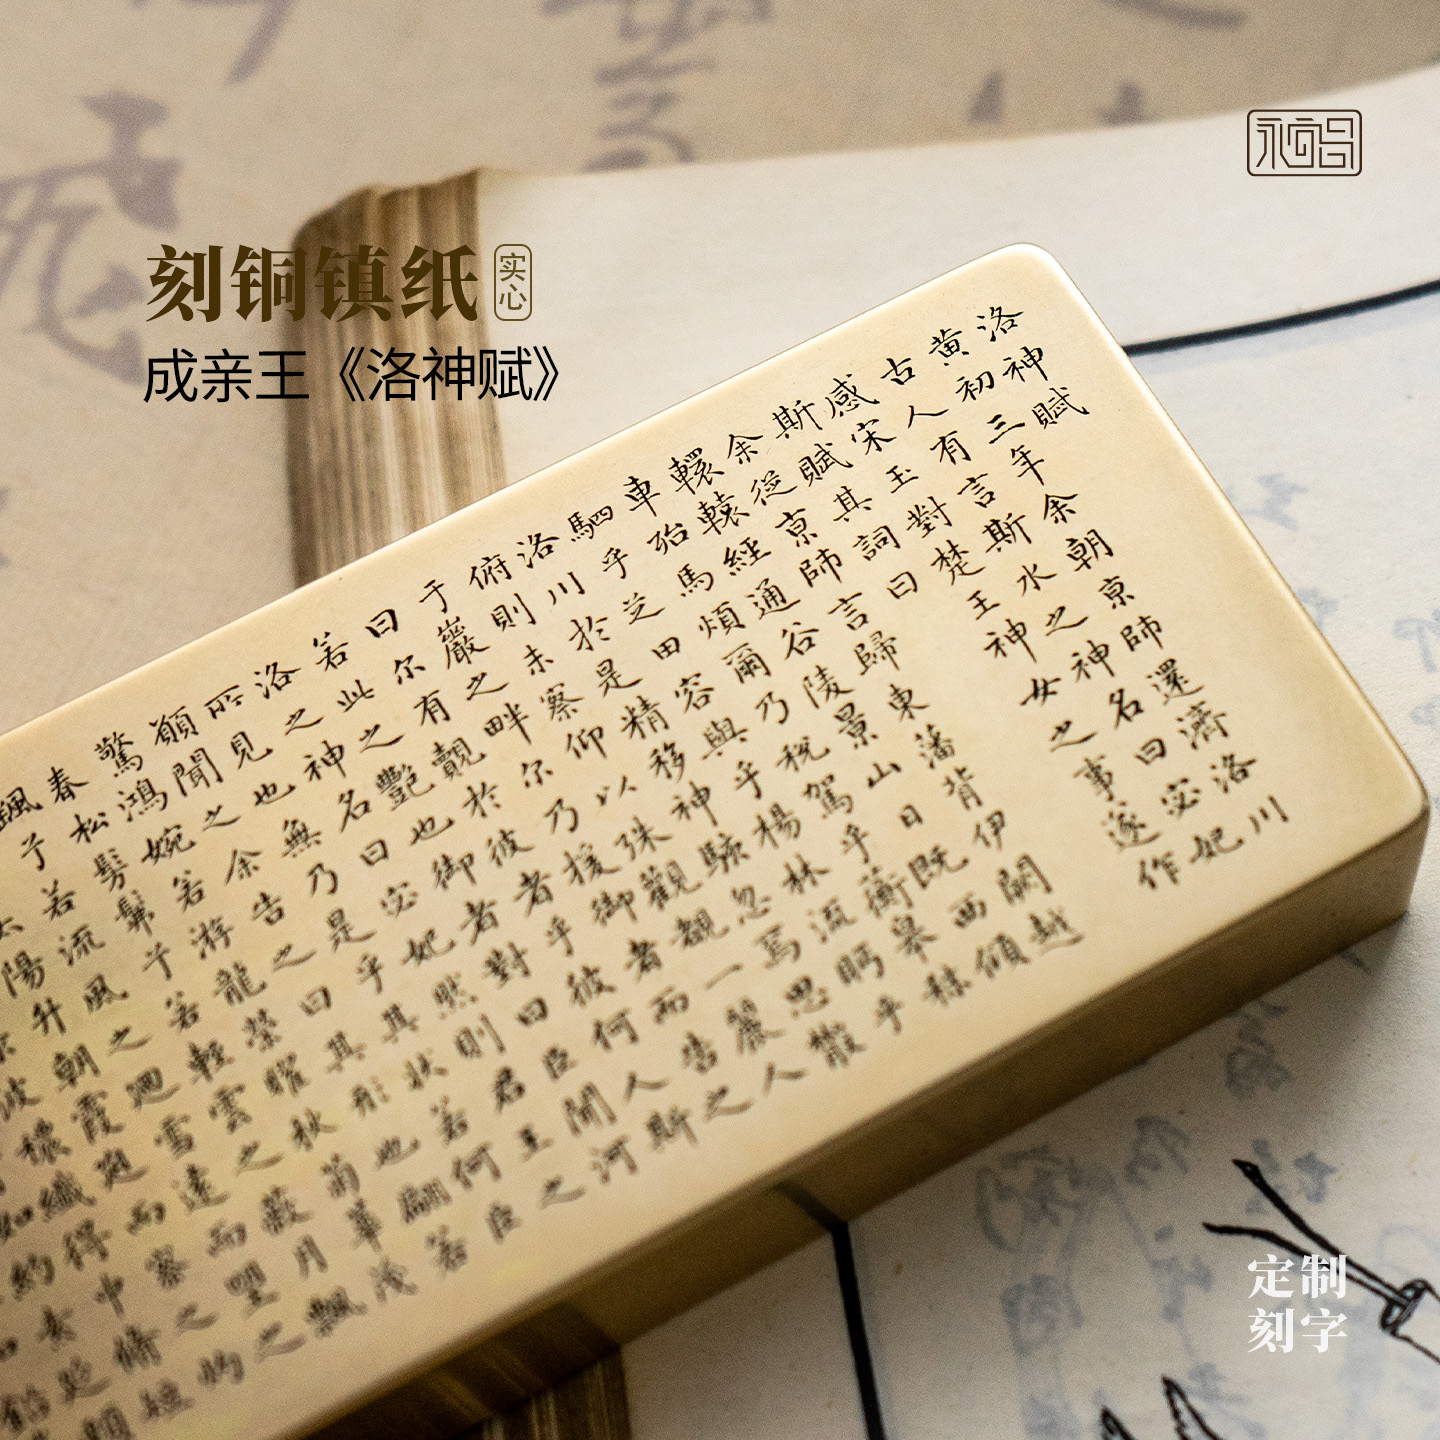 刻铜镇纸
实心
成亲王《洛神赋》
洛神賦
黄初三年余朝京師還濟洛川
古人有言斯水之神名曰宓妃
感宋玉對楚王神女之事遂作
斯賦其詞曰
余從京師言歸東藩背伊闕越
轘轅經通谷陵景山日既西傾
車殆馬煩爾乃税駕乎蘅皋秣
駟乎芝田容與乎楊林流眄乎
洛川於是精移神駭忽焉思散
俯則未察仰以殊觀覩一麗人
于巖之畔尔乃援御者而告之
曰尔有覿於彼者乎彼何人斯
若此之艷也御者對曰臣聞河
洛之神名曰宓妃然則君王之
所見也無乃是乎其狀若何臣
願聞之余告之曰其形也翩若
驚鴻婉若游龍榮曜秋菊華茂
春松髣髴兮若輕雲之蔽月飄
颻兮若流風之迴雪遠而望之
定制
刻字